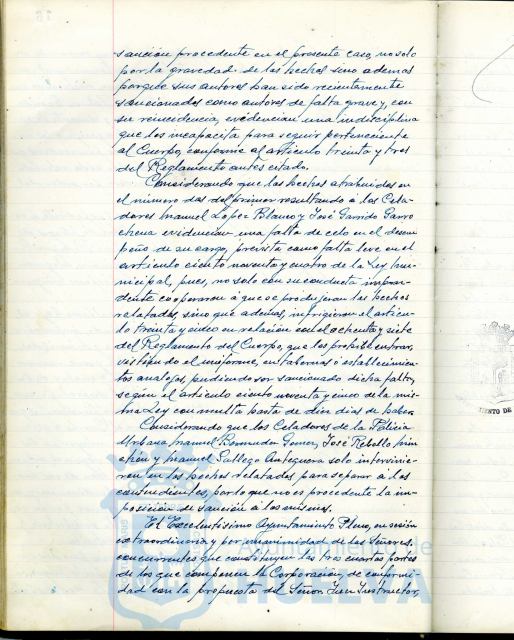 sancion procedente en el presente caso, no solo
por la gravedad de los hechos sino ademas
porque sus autores han sido recientemente
sancionados como autores de falta grave y, con
su reincidencia, evidencian una indisciplina
que los incapacita para seguir perteneciente
al Cuerpo, conforme al articulo treinta y tres
del Reglamento antes citado.
Considerando que los hechos atribuidos en
el número dos del primer resultando á los Cela-
dores Manuel Lopez Blanco y José Garrido Garro
chena evidencian una falta de celo en el desem
peño de su cargo, prevista como falta leve en el
articulo ciento noventa y cuatro de la Ley Mu-
nicipal, pues, no solo con su conducta impru-
dente cooperaron á que se produjeran los hechos
relatados, sino que además, infrigieron el articu-
lo treinta y cinco en relación con el ochenta y siete
del Reglamento del Cuerpo, que les prohibe entrar,
vistiendo el uniforme, en tabernas ó establecimien
tos analogos, pudiendo ser sancionado dicha falta,
según el articulo ciento noventa y cinco de la mis-
ma Ley con multa hasta de diez dias de haber.
Considerando que los Celadores de la Policia
Urbana Manuel Bermudez Gomez, José Rebollo
y Manuel Gallego Antequera solo intervinie-
ron en los hechos relatados para separar á los
contendientes, por lo que no es procedente la im-
posición de sanción á los mismos.
El Excelentisimo Ayuntamiento Pleno, en sesión
extraordinaria y por unanimidad de los Señores
concurrentes que constituyen las tres cuartas partes
de los que componen la Corporación, de conformi-
dad con la propuesta del Señor Juez Instructor,
Ayuntamiento de
HUELVA
MIENTO DE